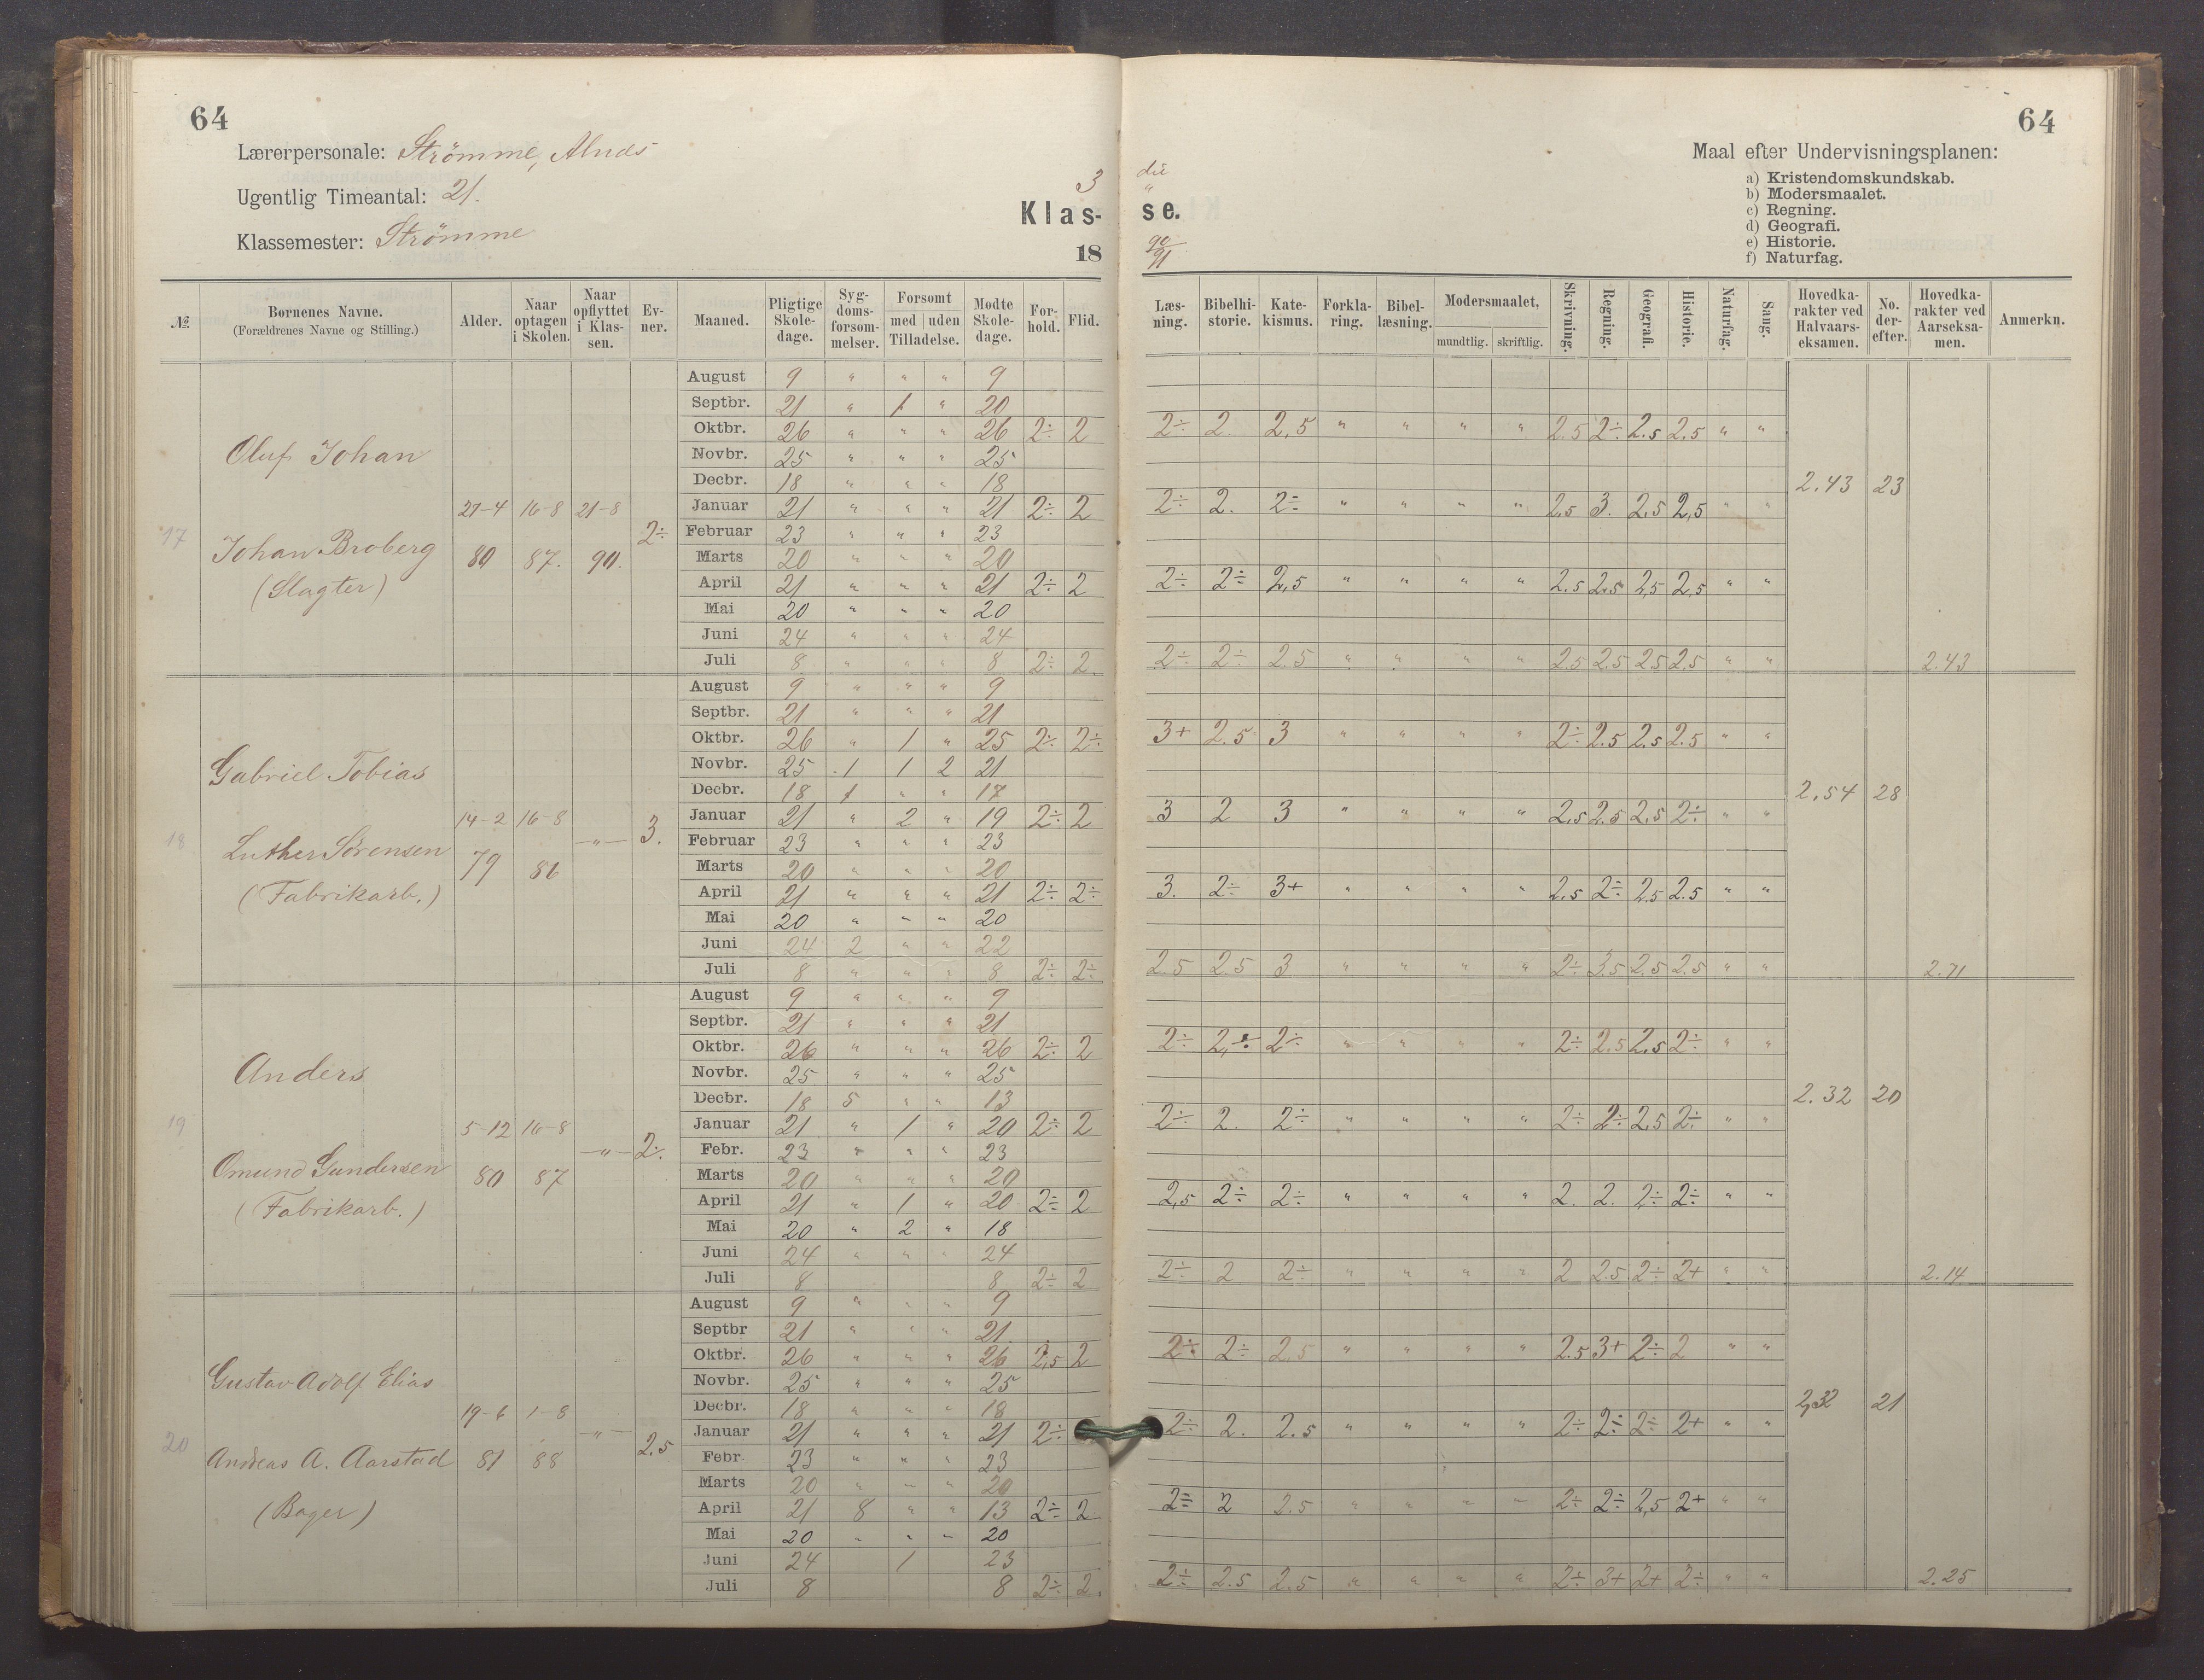 64
64
Lærerpersonale: Strömme,
Ugentlig Timeantal: 21.
Klassemester: Strömme
3 die
Klas- se.
18 90/91
Maal efter Undervisningsplanen:
a) Kristendomskundskab.
b) Modersmaalet.
c) Regning.
d) Geografi.
e) Historie.
f) Naturfag.
№ Bornenes Navne. (Forældrenes Navne og Stilling.) Alder. Naar optagen i Skolen. Naar opflyttet i Klas-sen. Ev-ner. Maaned. Pligtige Skole-dage. Syg-doms-forsom-melser. Forsomt med uden Tilladelse. Modte Skole-dage. For-hold. Flid. Læs-ning. Bibelhi-storie. Kate-kismus. Forkla-ring. Bibel-læsning. Modersmaalet, mundtlig. skriftlig. Skrivning. Regning. Geografi. Historie. Naturfag. Sang. Hovedka-rakter ved Halvaars-eksamen. No. der-efter. Hovedka-rakter ved Aarseksa-men. Anmerkn.
17
Oluf Johan
Johan Broberg
(Slagter)
27-4 16-8 21-8
80 87. 90.
2÷
August 9 " " " 9
Septbr. 21 " 1 " 20
Oktbr. 26 " " " 26 2÷ 2 2÷ 2. 2,5 " " " " 2.5 2÷ 2.5 2.5 " "
Novbr. 25 " " " 25
Decbr. 18 " " " 18 2.43 23
Januar 21 " " " 21 2÷ 2 2÷ 2. 2÷ " " " " 2,5 3. 2,5 2,5 " "
Februar 23 " " " 23
Marts 20 " " " 20
April 21 " " " 21 2÷ 2 2÷ 2÷ 2,5 " " " " 2.5 2.5 2,5 2,5 " "
Mai 20 " " " 20
Juni 24 " " " 24
Juli 8 " " " 8 2÷ 2. 2÷ 2÷ 2.5 " " " " 2.5 2.5 2.5 2.5 " " 2.43
18
Gabriel Tobias
Luther Sörensen
(Fabrikarb.)
14-2 16-8
79 86
—"— 3.
August 9 " " " 9
Septbr. 21 " " " 21
Oktbr. 26 " 1 " 25 2÷ 2÷ 3+ 2.5 3 " " " " 2÷ 2.5 2.5 2.5 " "
Novbr. 25 1 1 2 21
Decbr. 18 1 " " 17 2,54 28
Januar 21 " 2 " 19 2÷ 2 3 2 3 " " " " 2,5 2.5 2,5 2÷ " "
Februar 23 " " " 23
Marts 20 " " " 20
April 21 " " " 21 2÷ 2÷ 3. 2÷ 3+ " " " " 2,5 2÷ 2,5 2.5 " "
Mai 20 " " " 20
Juni 24 2 " " 22
Juli 8 " " " 8 2÷ 2÷ 2.5 2.5 3 " " " " 2÷ 3,5 2.5 2.5 " " 2.71
19
Anders
Omund Gundersen
(Fabrikarb.)
5-12 16-8
80 87
—"— 2÷
August 9 " " " 9
Septbr. 21 " " " 21
Oktbr. 26 " " " 26 2÷ 2 2÷ 2÷ 2÷ " " " " 2÷ 2.5 2.5 2÷ " "
Novbr. 25 " " " 25
Decbr. 18 5 " " 13 2.32 20
Januar 21 " 1 " 20 2÷ 2 2÷ 2. 2÷ " " " " 2÷ 2÷ 2,5 2÷ " "
Febr. 23 " " " 23
Marts 20 " " " 20
April 21 " 1 " 20 2÷ 2 2,5 2÷ 2÷ " " " " 2. 2. 2÷ 2÷ " "
Mai 20 " 2 " 18
Juni 24 " " " 24
Juli 8 8 2÷ 2 2÷ 2 2÷ " " " " 2 2.5 2÷ 2+ " " 2.14
20
Gustav Adolf Elias
Andreas A. Aarstad
(Bager)
19-6 1-8
81 88
—"— 2.5
August 9 " " " 9
Septbr 21 " " " 21.
Oktbr. 26 " " " 26 2,5 2 2÷ 2÷ 2,5 " " " " 2.5 3+ 2÷ 2 " "
Novbr. 25 " " " 25
Decbr. 18 " " " 18 2,32 21
Januar 21 " " " 21 2÷ 2÷ 2. 2.5 " " " " 2÷ 2÷ 2÷ 2+ " "
Febr. 23 " " " 23
Marts 20 " " " 20
April 21 8 " " 13 2÷ 2 2÷ 2 2.5 " " " " 2÷ 2÷ 2,5 2+ " "
Mai 20 " " " 20
Juni 24 1 23
Juli 8 8 2÷ 2. 2÷ 2.5 2.5 " " " " 2÷ 3+ 2+ 2÷ " " 2.25